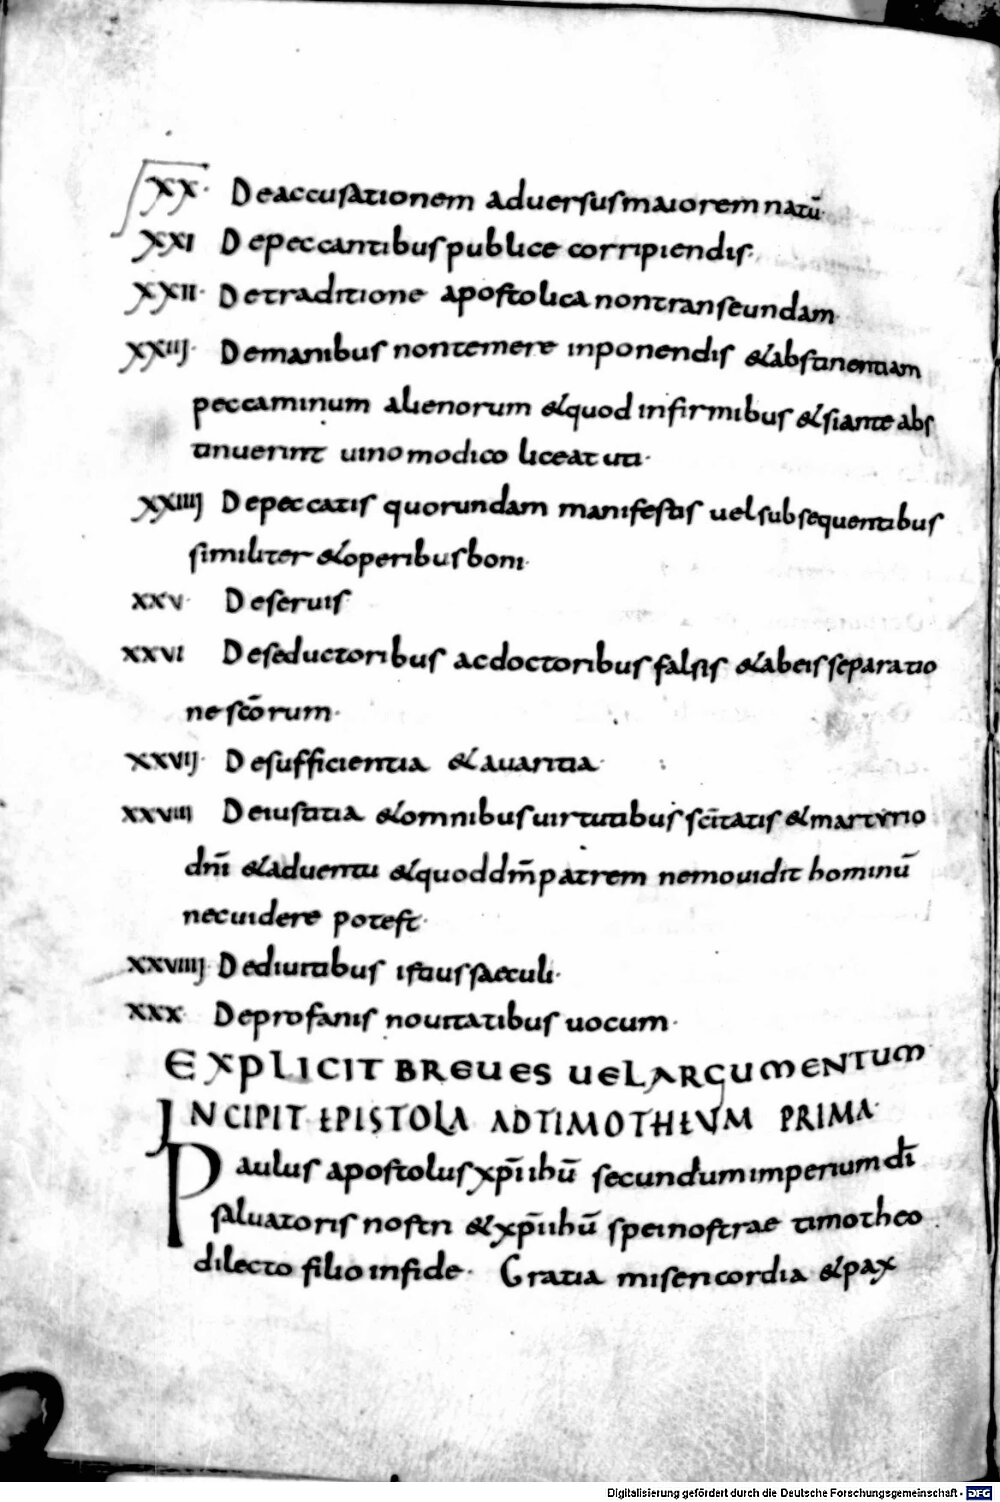 XX· De accusationem aduersus maiorem natū·
XXI De peccantibus publice corripiendis·
XXII· De traditione apostolica non transeundam·
XXIIJ· De manibus non temere inponendis & abstinentiam
peccaminum alienorum & quod infirmibus & si ante abs
tinuerint uino modico liceat uti·
XXIIIJ De peccatis quorundam manifestis uel subsequentibus
similiter & operibus boni·
XXV· De seruis
XXVI De seductoribus ac doctoribus falsis & ab eis separatio
ne scōrum·
XXVIJ· De sufficientia & auaritia·
XXVIII De iustitia & omnibus uirtutibus sc̄itatis & martyrio
dn̄i & aduentu & quod dm̄ patrem nemo uidit hominū
nec uidere potest·
XXVIIIJ De diuitibus istius saeculi·
XXX De profanis nouitatibus uocum·
EXPLICIT BREUES UEL ARGUMENTUM
INCIPIT EPISTOLA AD TIMOTHEVM PRIMA·
Paulus apostolus xp̄i ihū secundum imperium dī
saluatoris nostri & xp̄i ihū spei nostrae timotheo
dilecto filio in fide· Gratia misericordia & pax
Digitalisierung gefördert durch die Deutsche Forschungsgemeinschaft - DFG